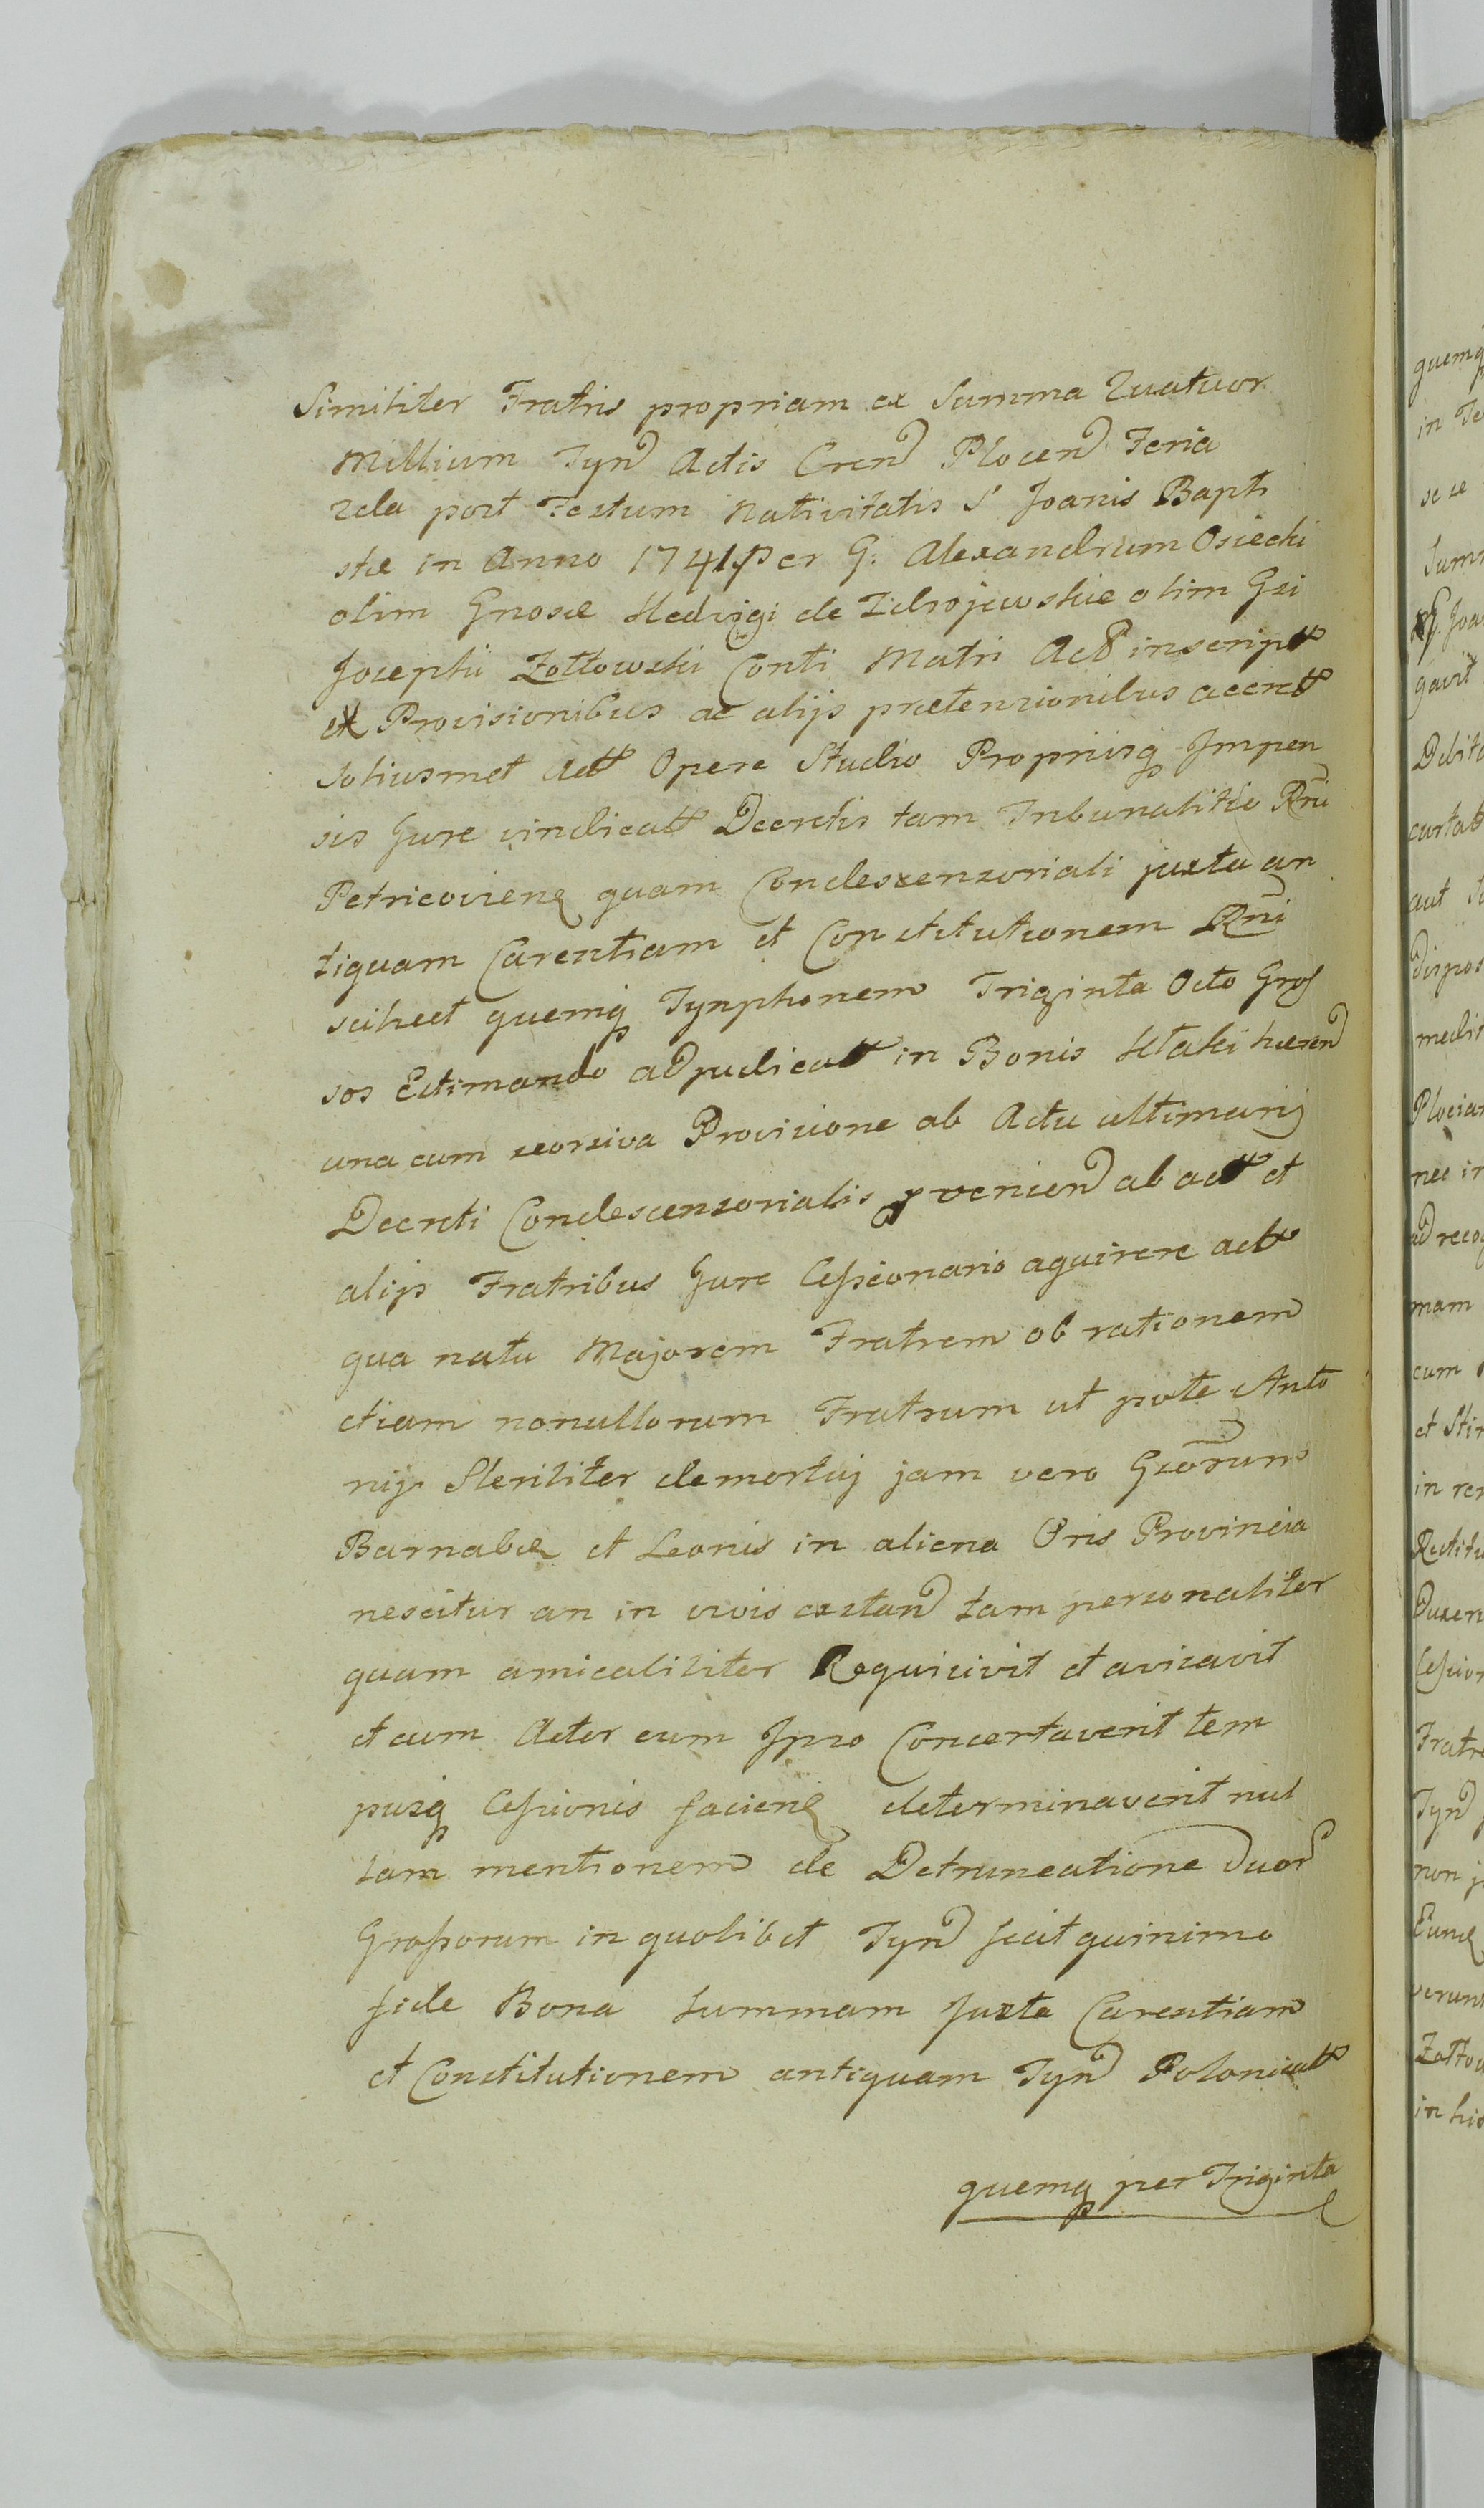 Similiter Fratris propriam ex Summa Quatuor
Millium Tyn Actis Cren Plocen Feria
2da post Festum Nativitatis S Joanis Bapti
stæ in Anno 1741 per G: Alexandrum Osiecki
olim Gnosæ Hedvigi de Zdrojewskie olim Gsi
Josephi Zołtowski Conti Matri Act inscript
ex Provisionibus ac alijs prætensionibus accret
Soliusmet Act Opere Studio Proprijsq Impen
sis Jure vindicat Decretis tam Tribunalitio Rni
Petricovien quam Condescensoriali juxta an
tiquam Carentiam et Constitutionem Rni
scilicet quemq Tynphonem Triginta Octo Gros
sos Estimando adjudicat in Bonis Setaki hæren
una cum seorsiva Provisione ab Actu ultimarij
Decreti Condescensorialis provenien ab act et
alijs Fratribus Jure Cessionario aquirere act
qua natu Majorem Fratrem ob rationem
etiam nonullorum Fratrum ut pote Anto
nij Steriliter demortuj jam vero Gsorum
Barnabæ et Leonis in aliena Oris Provincia
nescitur an in vivis extan tam personaliter
quam amicaliliter Requisivit et avisavit
et cum Actor cum Ipso Concertaverit tem
pusq Cessionis facien determinaverit nul
lam mentionem de Detruncatione duor
Grossorum in quolibet Tyn fecit quinimo
fide Bona Summam Juxta Carentiam
et Constitutionem antiquam Tyn Polonicat
quemq per Triginta
quemq
in Te
se se
Joa
gavit
Debito
curtat
aut
dispos
medi
Plocia
nec in
ad reco
mam
cum
et Stir
in re
Restitu
Duxer
Cession
Fratre
Tyn
non j
Eund
verun
Zołtow
in hi